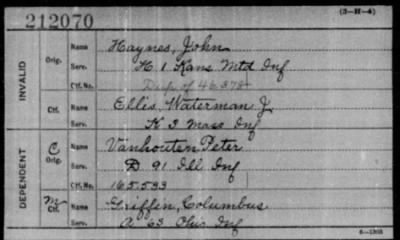 212070
(3-H-4)
INVALID
Orig.
Name Haynes, John
Serv. H 1 Kans Mtd Inf
Ctf. No. Dup of 46378
Ctf.
Name Ellis, Waterman J.
Serv. K 3 Mass Inf
DEPENDENT
C Orig.
Name Vanhouten Peter
Serv. D 91 Ill Inf
Ctf. No. 165533
M Ctf.
Name Griffin, Columbus
Serv. A 63 Ohio Inf